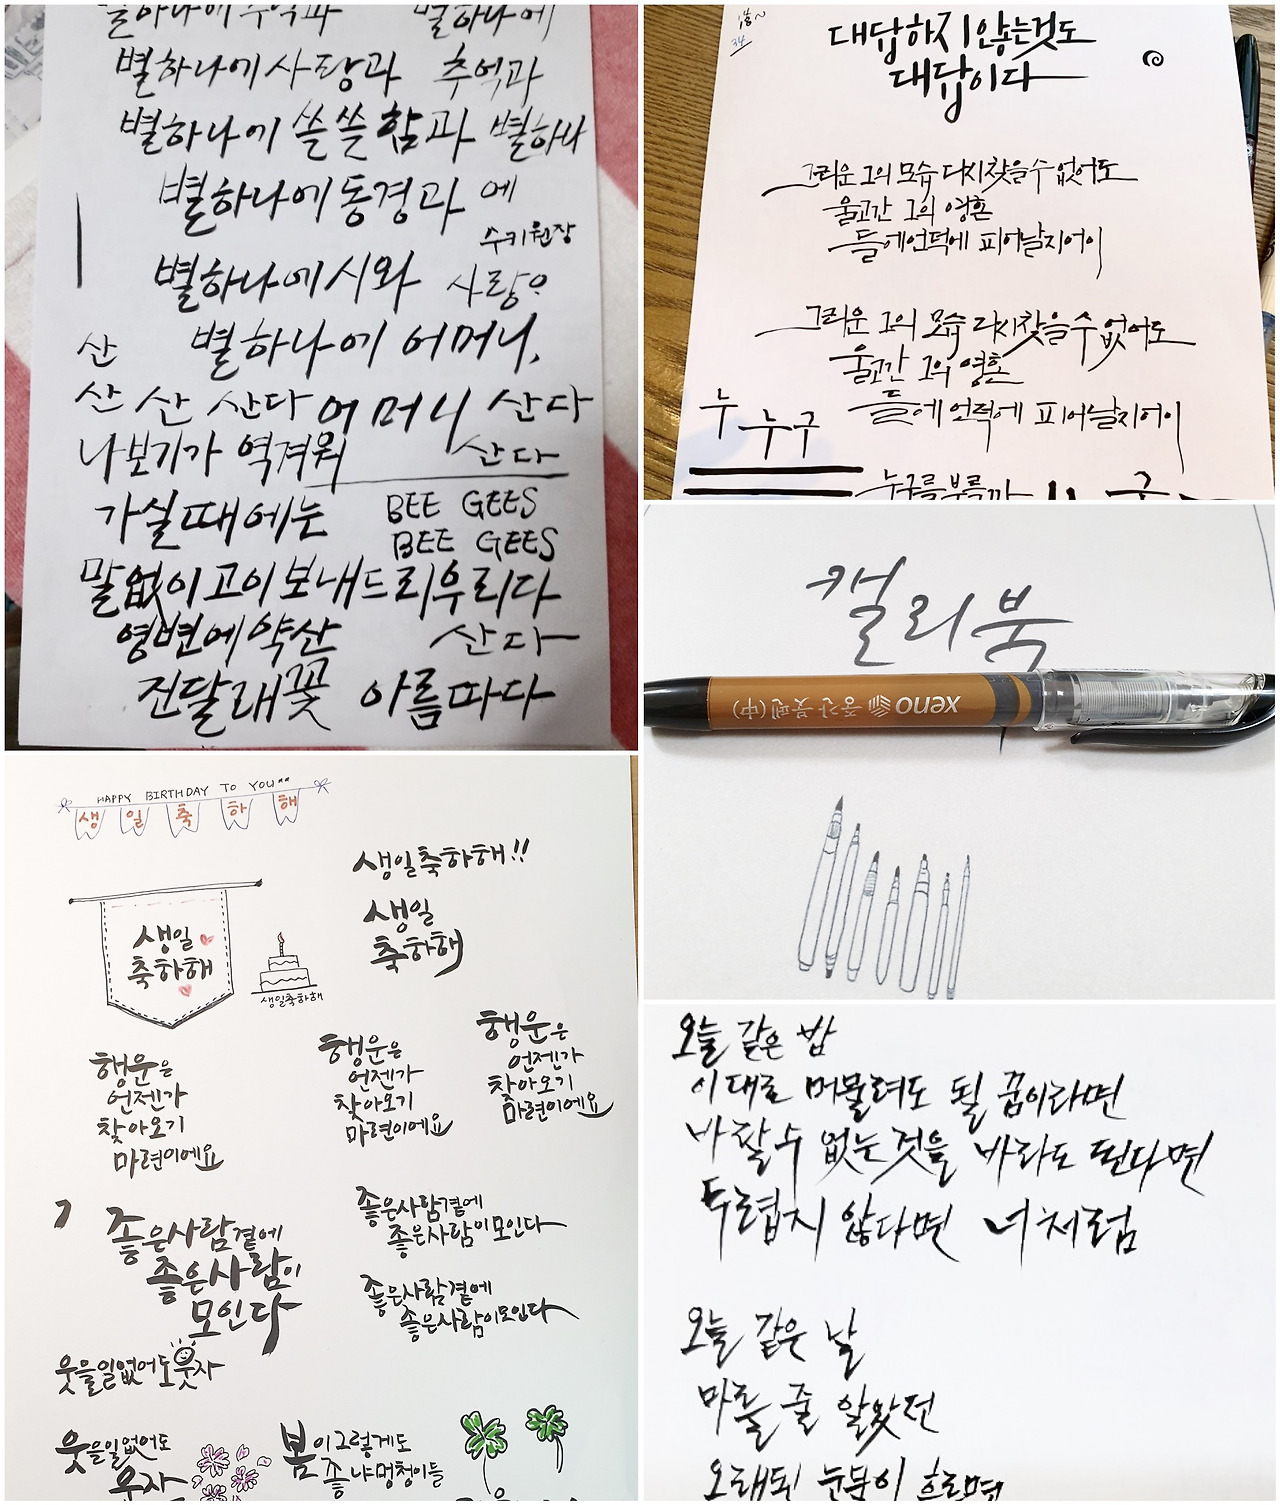 별하나에 추억과 별하나에
별하나에 사랑과 추억과
별하나에 쓸쓸함과 별하나
별하나에 동경과 에
수키원장
별하나에 시와 사랑?
산 별하나에 어머니,
산 산 산다 어머니 산다
나보기가 역겨워 산다
가실때에는 BEE GEES
BEE GEES
말없이 고이 보내드리우리다
영변에 약산 산다
진달래꽃 아름따다
34
대답하지 않는것도
대답이다
그리운 그의 모습 다시찾을수없어도
울고간 그의 영혼
들에언덕에 피어날지어이
그리운 그의 모습 다시찾을수없어도
울고간 그의 영혼
들에언덕에 피어날지어이
누 누구
누구를부를까
캘리북
xeno 중간 붓펜(中)
HAPPY BIRTHDAY TO YOU**
생 일 축 하 해
생일축하해!!
생일
축하해
생일
축하해
생일축하해
행운은
언젠가
찾아오기
마련이에요
행운은
언젠가
찾아오기
마련이에요
행운은
언젠가
찾아오기
마련이에요
좋은사람곁에
좋은사람이
모인다
좋은사람곁에
좋은사람이모인다
좋은사람곁에
좋은사람이모인다
웃을일없어도웃자
웃을일없어도
웃자
봄이그렇게도
좋냐멍청이들
오늘 같은 밤
이대로 머물러도 될 꿈이라면
바랄수 없는것을 바라도 된다면
두렵지 않다면 너처럼
오늘 같은 날
마를 줄 알았던
오래된 눈물이 흐르면